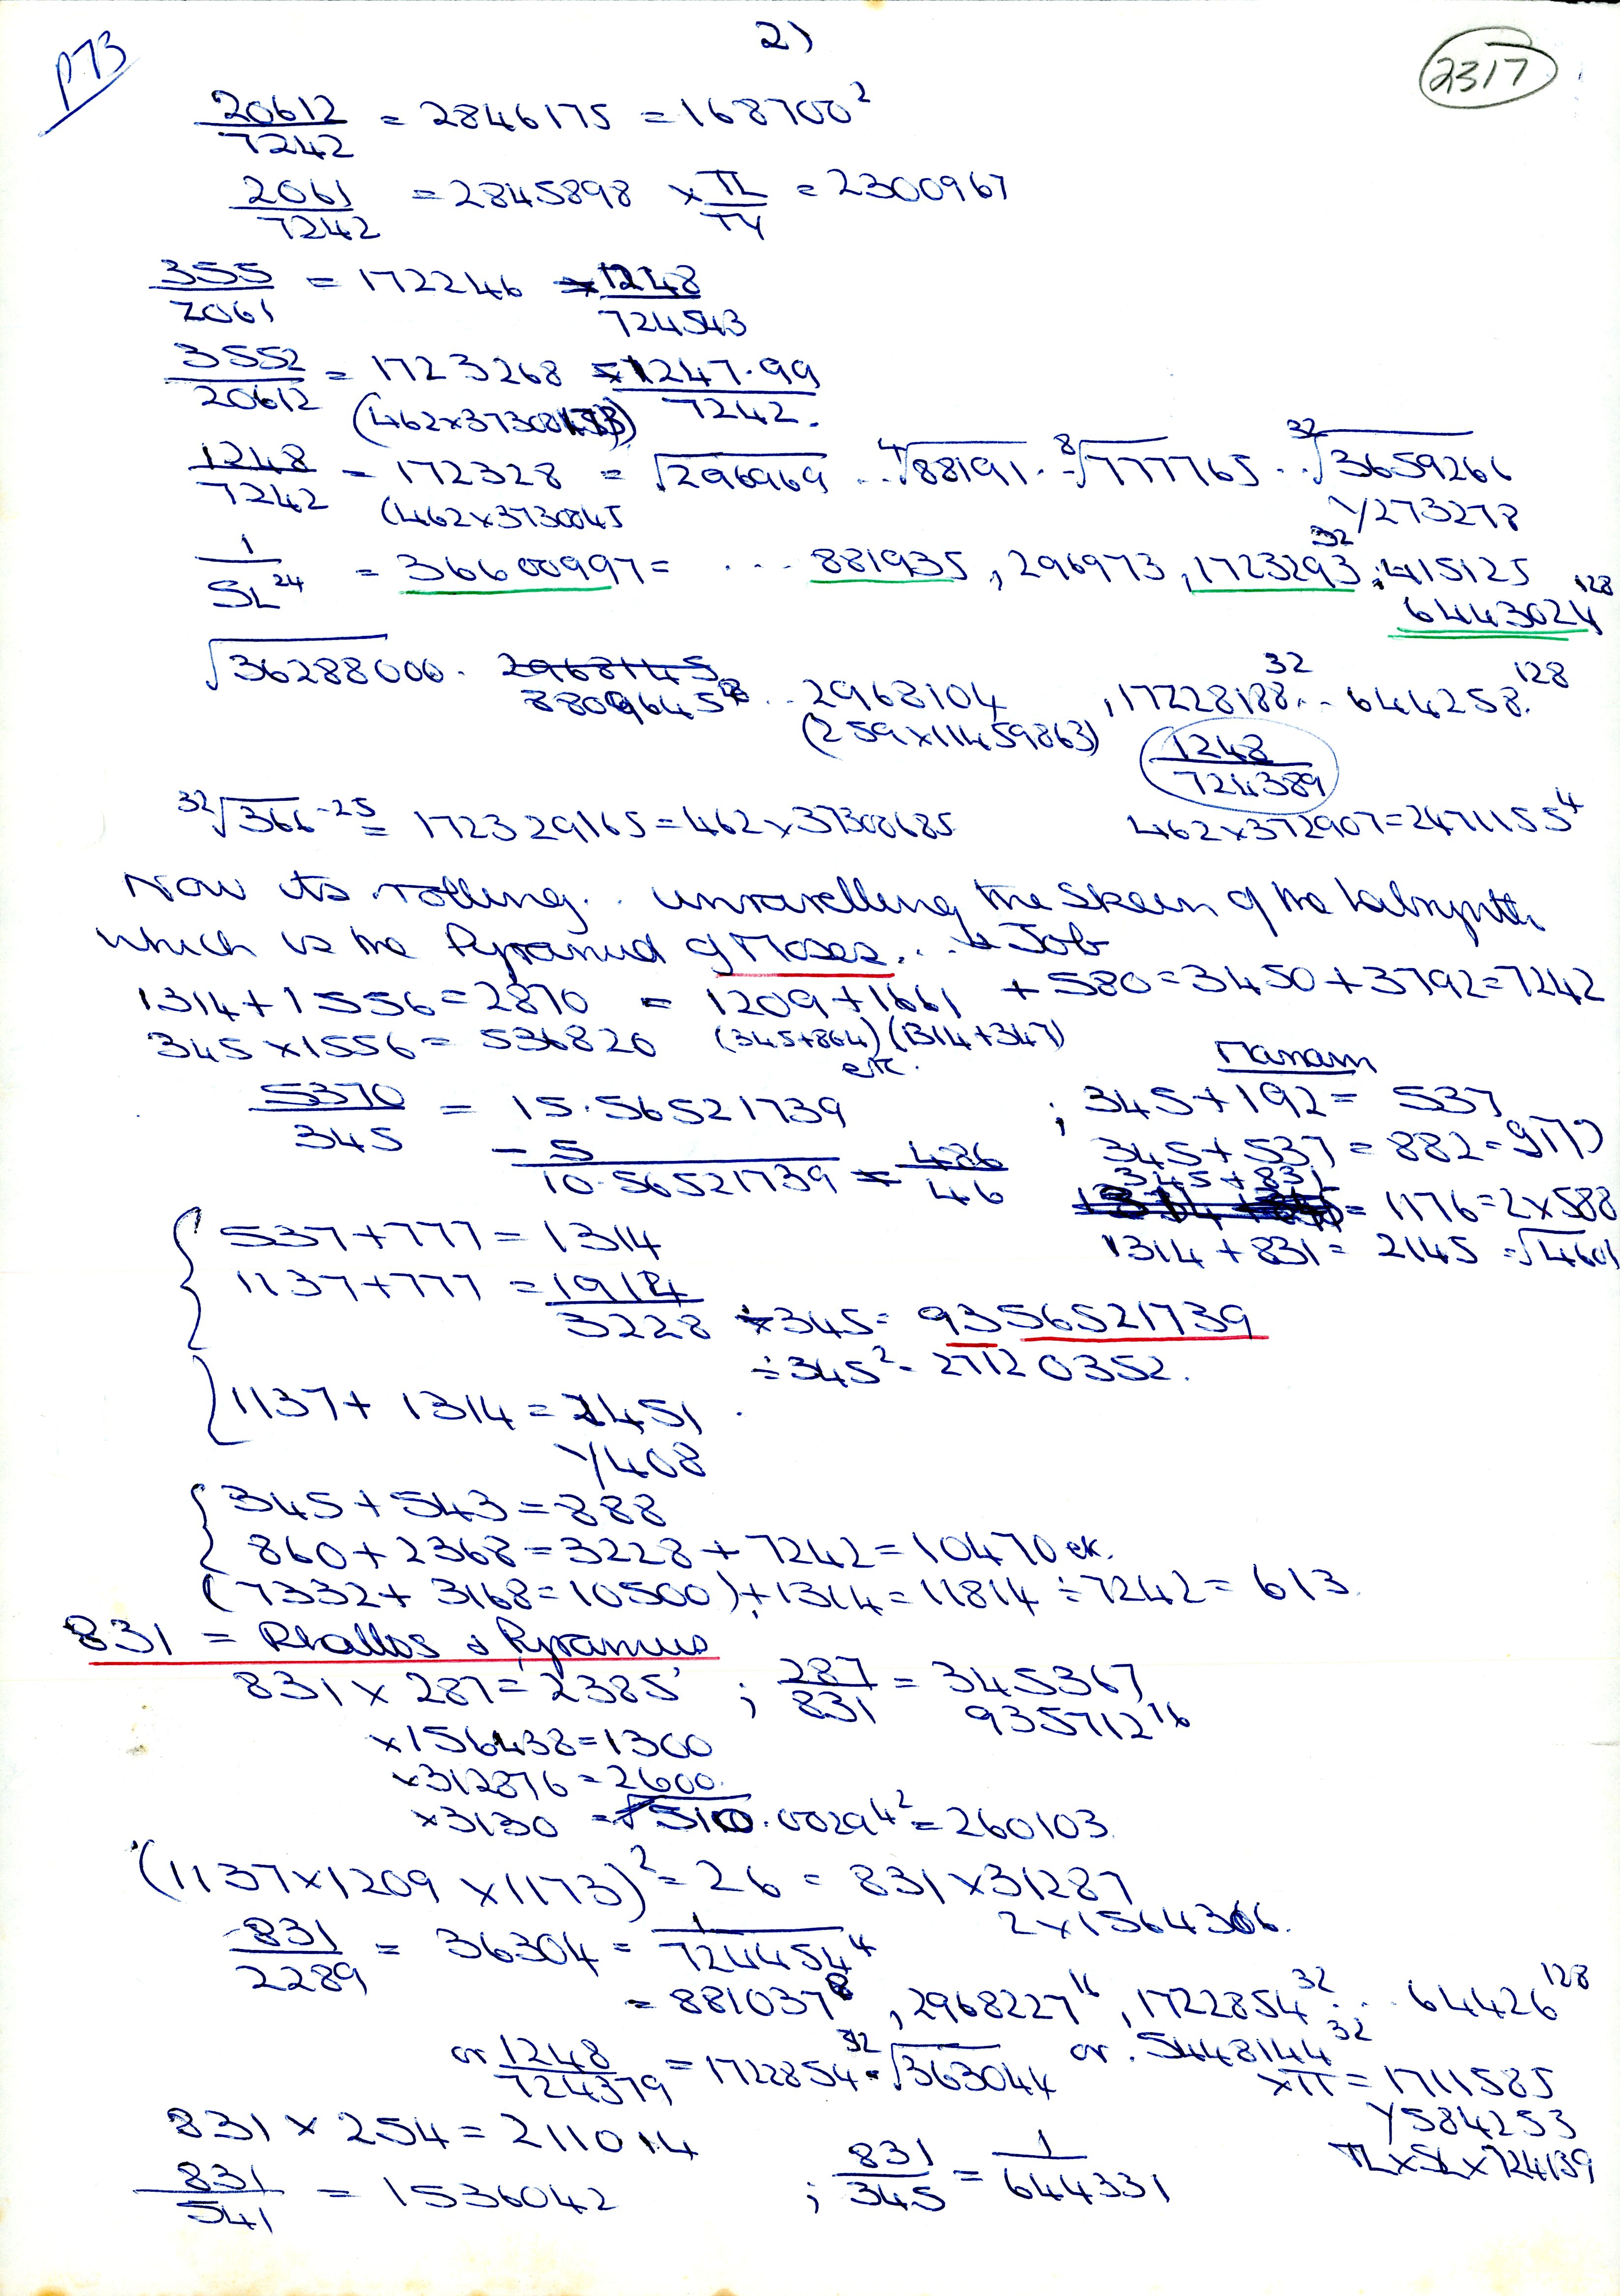 P73
2)
2317
20612/7242 = 2846175 = 168700²
2061/7242 = 2845898 × TL/TY = 2300967
355/2061 = 172246 = 1248/724543
3552/20612 = 1723268 = 1247.99/7242.
(462×37300173)
1248/7242 = 172328 = √296969 ... ⁴√88191 . ⁸√777765 ... ³²√3659266
(462×3730045
Y273278
1/SL²⁴ = 36600997 = ... 881935, 296973, 1723293³², 415125
6443024¹²⁸
√36288000 . 2968145
8809645⁸ .. 2968104, 17228188³² .. 644258.¹²⁸
(259×11459863)
1248/724389
³²√366⁻²⁵ = 172329165 = 462×37300685
462×372907 = 2471155⁴
Now its rolling.. unravelling the Skein of the Labrynth
which is the Pyramid of Moses... & Job
1314+1556=2870 = 1209+1661 +580=3450+3792=7242
345×1556=536820 (345+864)(1314+347)
etc.
Manam
5370/345 = 15.56521739 ; 345+192= 537
- 5
10.56521739 = 486/46
345+537=882=9170
345+831 = 1176=2×588
1314+831= 2145 =√4601
537+777=1314
1137+777=1914
3228 ÷345= 9356521739
÷345²= 27120352.
1137+ 1314=2451
Y408
345+543=888
860+2368=3228+7242=10470 etc.
(7332+3168=10500)+1314=11814÷7242=613.
831 = Phallos & Pyramus
831×287=2385 ; 287/831 = 345367
935712¹⁶
×156438=1300
×312876=2600.
×3130 =√510.0029⁴²=260103
(1137×1209×1173)²=26= 831×31287
2×1564366.
831/2289 = 36304 = 1/724454⁴
= 881037⁸, 2968227¹⁶, 1722854³² ... 64426¹²⁸
or 1248/724379 = 1722854 = ³²√363044 or .5448144³²
×π=1711585
Y584253
TL×SL×724139
831×254=211014
831/541 = 1536042 ; 831/345 = 1/644331